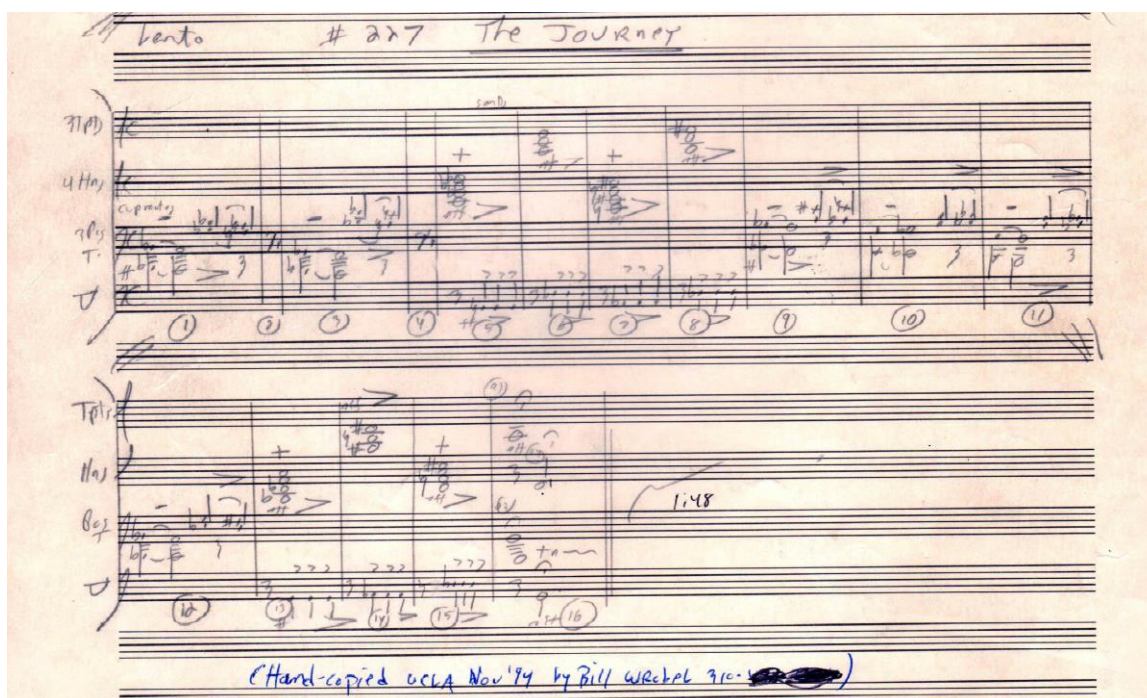 Lento # 227 The Journey
3 Tpts
sords
4 Hns
cup mutes
3 Pos
T.
1 2 3 4 5 6 7 8 9 10 11
Tpts
Hns
1:48
12 13 14 15 16
(Hand-copied UCLA Nov '94 by Bill Wrobel 310-